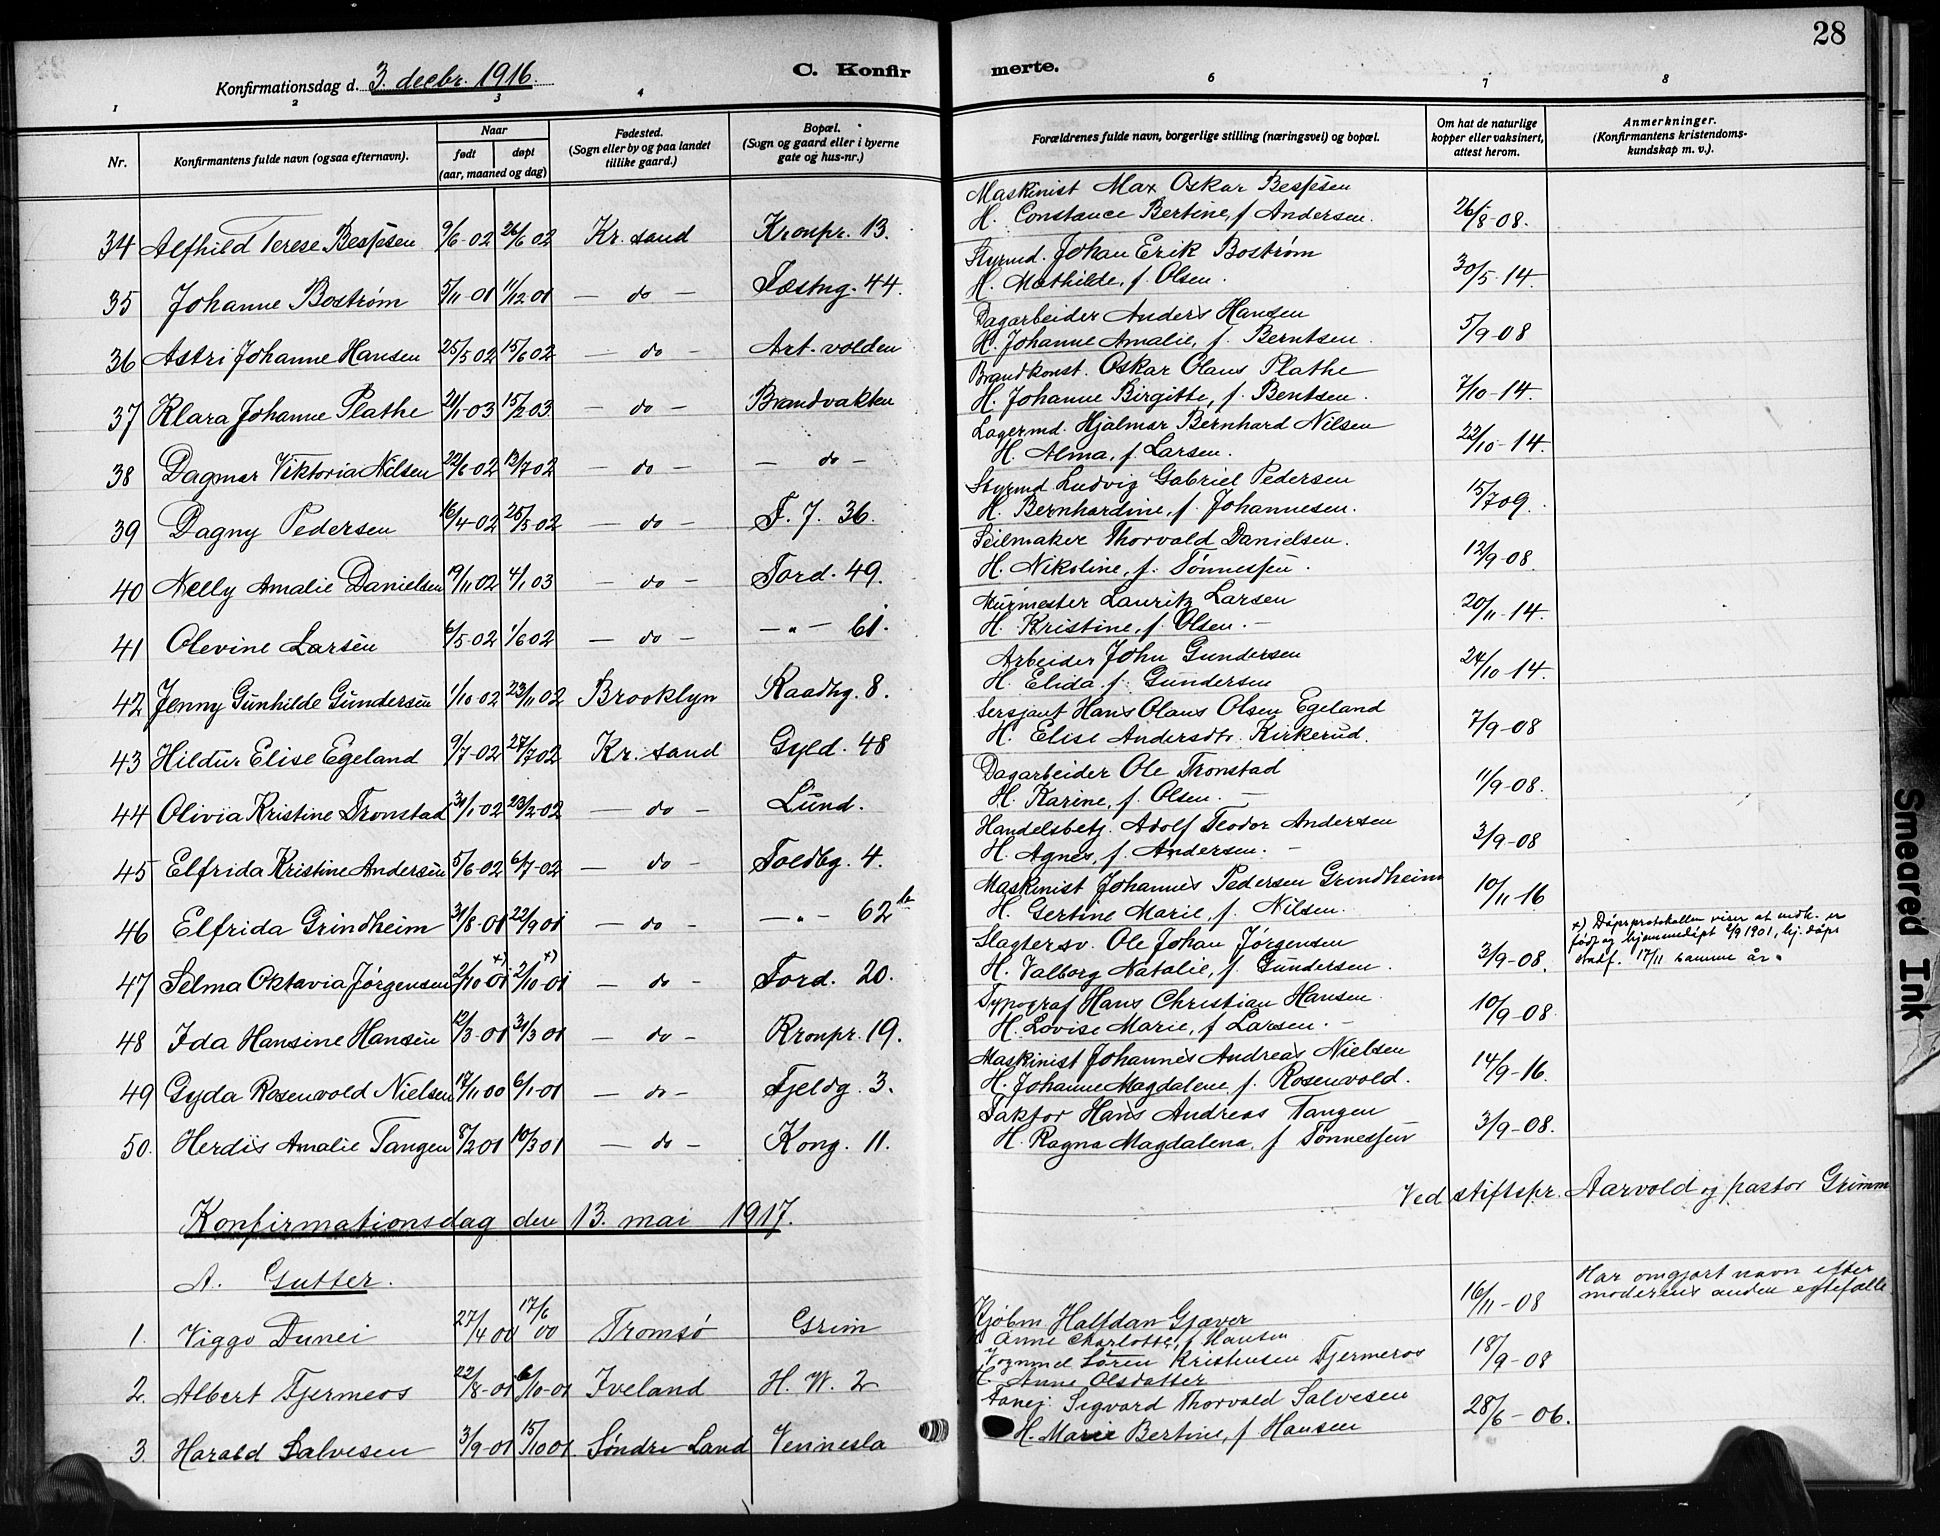 28
Konfirmationsdag d. 3. decbr. 1916.
C. Konfirmerte.
1 2 3 4 6 7 8
Nr. Konfirmantens fulde navn (ogsaa efternavn). Naar født døpt (aar, maaned og dag) Fødested. (Sogn eller by og paa landet tillike gaard.) Bopæl. (Sogn og gaard eller i byerne gate og hus-nr.) Forældrenes fulde navn, borgerlige stilling (næringsvei) og bopæl. Om hat de naturlige kopper eller vaksinert, attest herom. Anmerkninger. (Konfirmantens kristendoms-kundskap m. v.).
34 Alfhild Terese Besjesen 9/6-02 26/6 02 Kr. sand Kronpr. 13. Maskinist Max Oskar Besjesen
H. Constance Bertine, f Andersen. 26/8-08.
35 Johanne Bostrøm 5/11-01 1/12 01 — do — Fæstng. 44. Styrmd. Johan Erik Bostrøm
H. Mathilde, f. Olsen. 30/5-14.
36 Astri Johanne Hansen 25/5 02 15/6 02 — do — Art. volden Dagarbeider Anders Hansen
H. Johanne Amalie, f. Berntsen. 5/9-08
37 Klara Johanne Plathe 21/1-03 15/2 03. — do — Brandvakten Brandkonst. Oskar Olaus Plathe
H. Johanne Birgitte, f. Bentsen. 7/10-14.
38 Dagmar Viktoria Nilsen 22/6-02 13/7 02 — do — — do — Lagermd. Hjalmar Bernhard Nilsen
H. Alma, f. Larsen. 22/10-14.
39 Dagny Pedersen 16/4-02 25/5-02 — do — F. J. 36. Styrmd Ludvig Gabriel Pedersen
H. Bernhardine, f. Johannesen. 15/7 09.
40 Nelly Amalie Danielsen 19/11 02 4/1 03 — do — Tord. 49. Seilmaker Thorvald Danielsen.
H. Nikoline, f. Tønnessen. 12/9-08.
41 Olevine Larsen 6/5 02 1/6 02 — do — — " — 61. Murmester Lauritz Larsen
H. Kristine, f. Olsen. — 20/11-14.
42 Jenny Gunhilde Gundersen 1/10-02 23/11 02 Brooklyn Raadhg. 8. Arbeider John Gundersen
H. Elida f. Gundersen 24/10-14.
43 Hildur Elise Egeland 9/7-02 27/7 02 Kr. sand Gyld. 48 Sersjant Hans Olaus Olsen Egeland
H. Elise Andersdtr. Kirkerud. 7/9-08
44 Olivia Kristine Tronstad 31/1-02 23/2-02 — do — Lund. Dagarbeider Ole Tronstad
H. Karine, f. Olsen. — 11/9-08.
45 Elfrida Kristine Andersen 5/6-02 6/7-02 — do — Toldbg. 4. Handelsbetj. Adolf Teodor Andersen
H. Agnes, f. Andersen. — 3/9-08
46 Elfrida Grindheim 31/8-01 22/9 01 — do — — " — 62 b Maskinist Johannes Pedersen Grindheim
H. Gertine Marie, f. Nilsen. 10/11-16
47 Selma Oktavia Jørgensen 2/10 01 x) 2/10-01 x) — do — Tord. 20. Slagtersv. Ole Johan Jørgensen
H. Valborg Natalie, f. Gundersen. 3/9-08. x) Dåpsprotokollen viser at vedk. er
født og hjemmedøpt 2/9 1901, hj. dåps
stadf. 17/11 samme år.
48 Ida Hansine Hansen 12/3-01 31/3 01 — do — Kronpr. 19. Typograf Hans Christian Hansen.
H. Lovise Marie, f Larsen. — 10/9-08.
49 Gyda Rosenvold Nielsen 17/11 00 6/1-01 — do — Fjeldg. 3. Maskinist Johannes Andreas Nielsen
H. Johanne Magdalene, f. Rosenvold. 14/9-16.
50. Herdis Amalie Tangen 8/2 01 10/3 01 — do — Kong. 11. Faktor Hans Andreas Tangen
H. Ragna Magdalena, f Tønnessen 3/9-08.
Ved stiftspr. Aarvold og pastor Grimm
Konfirmationsdag den 13. mai 1917.
A. Gutter.
1. Viggo Dunei 27/4 00 17/6 00 Tromsø Grim Kjøbm Halfdan Gjæver
H. Anne Charlotte, f Hansen 16/11-08 Har omgjort navn efter
moderens anden egtefælle.
2. Albert Fjermeros 22/8-01 6/10-01 Iveland H. W. 2 Vognmd Søren Kristensen Fjermeros
H. Anne Olsdatter 18/9-08
3. Harald Salvesen 3/9-01 15/10 01 Søndre Land Vennesla Sigvard Thorvald Salvesen
H. Marie Bertine, f Hansen 28/6-06.
Smeared Ink